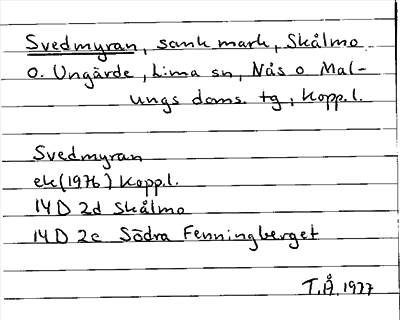 Svedmyran, sank mark, Skålmo
o. Ungärde, Lima sn, Nås o Mal-
ungs doms. tg, Kopp.l.
Svedmyran
ek(1976) Kopp.l.
14D 2d Skålmo
14D 2c Södra Fenningberget
T.Å. 1977